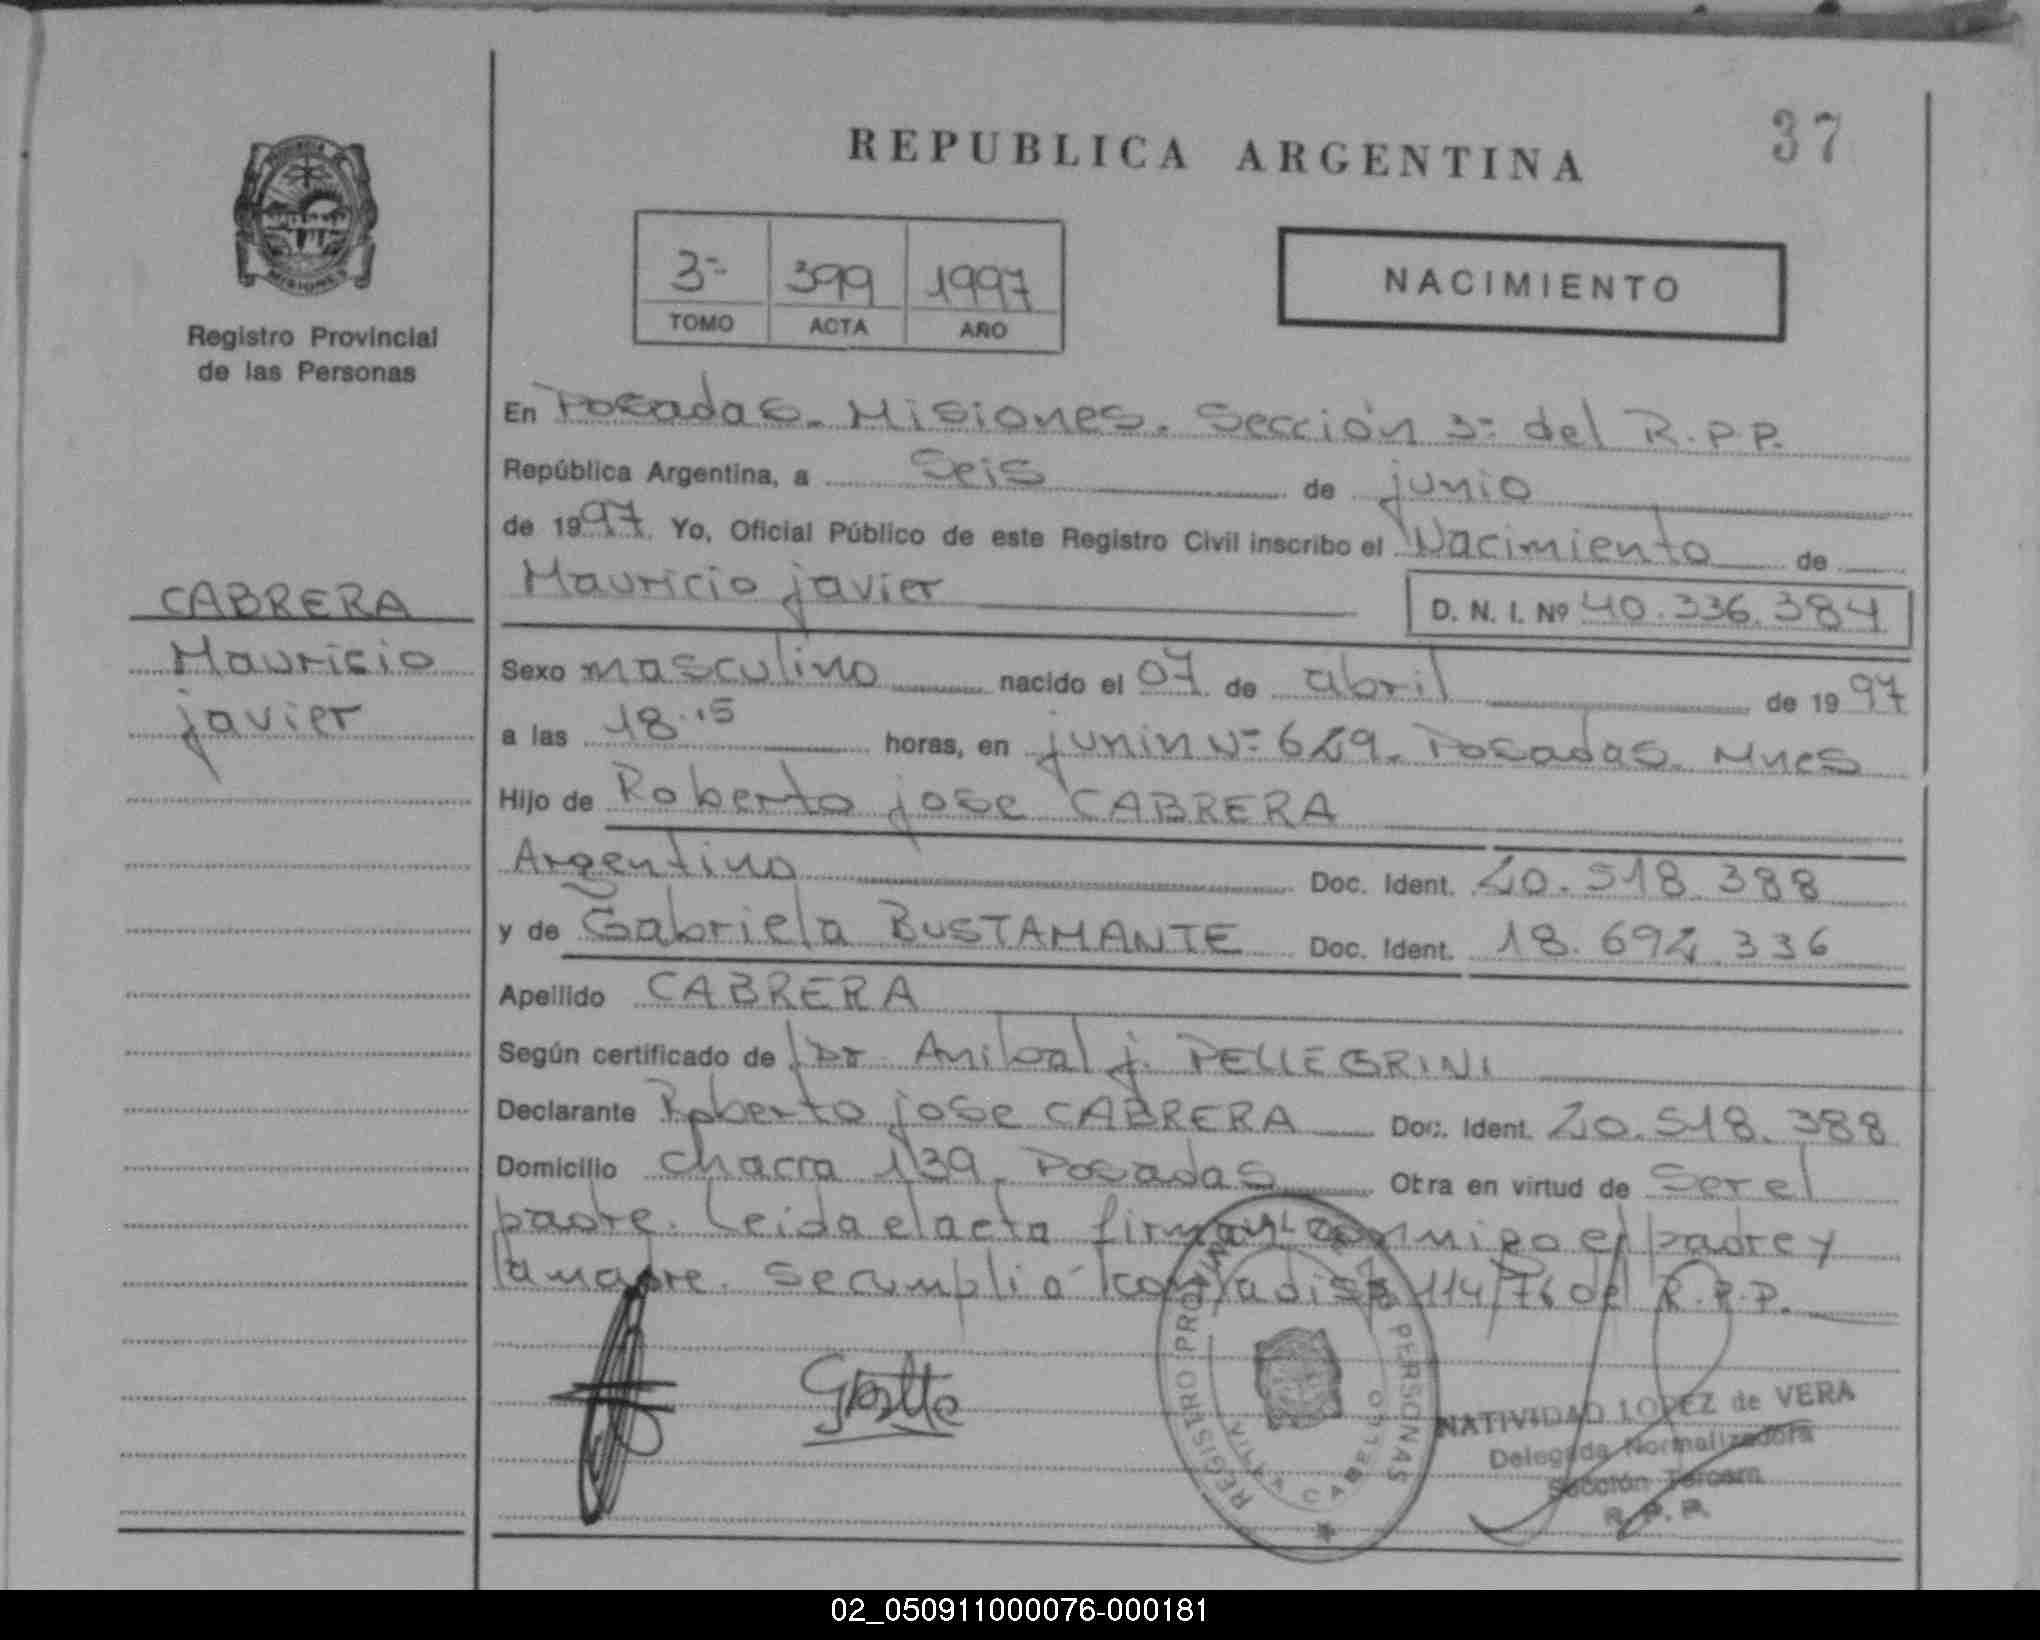 37
REPUBLICA ARGENTINA
3ª 399 1997
TOMO ACTA AÑO
NACIMIENTO
Registro Provincial
de las Personas
CABRERA
Mauricio
javier
En Posadas. Misiones. Sección 3ª del R.P.P.
República Argentina, a Seis de junio
de 1997. Yo, Oficial Público de este Registro Civil inscribo el Nacimiento de
Mauricio javier D. N. I. Nº 40.336.384
Sexo masculino nacido el 07 de abril de 1997
a las 18.15 horas, en junin Nº 629. Posadas. Mnes
Hijo de Roberto jose CABRERA
Argentino Doc. Ident. 20.518.388
y de Gabriela BUSTAMANTE Doc. Ident. 18.692.336
Apellido CABRERA
Según certificado de Dr. Anibal j. PELLEGRINI
Declarante Roberto jose CABRERA Doc. Ident. 20.518.388
Domicilio chacra 139. Posadas Obra en virtud de Ser el
padre. Leida el acta firman conmigo el padre y
la madre. Se cumplio con la disp. 114/76 del R.P.P.
REGISTRO PROVINCIAL PERSONAS
CABELLO
NATIVIDAD LOPEZ de VERA
Delegada Normalizadora
Sección Tercera
R. P. P.
02_050911000076-000181